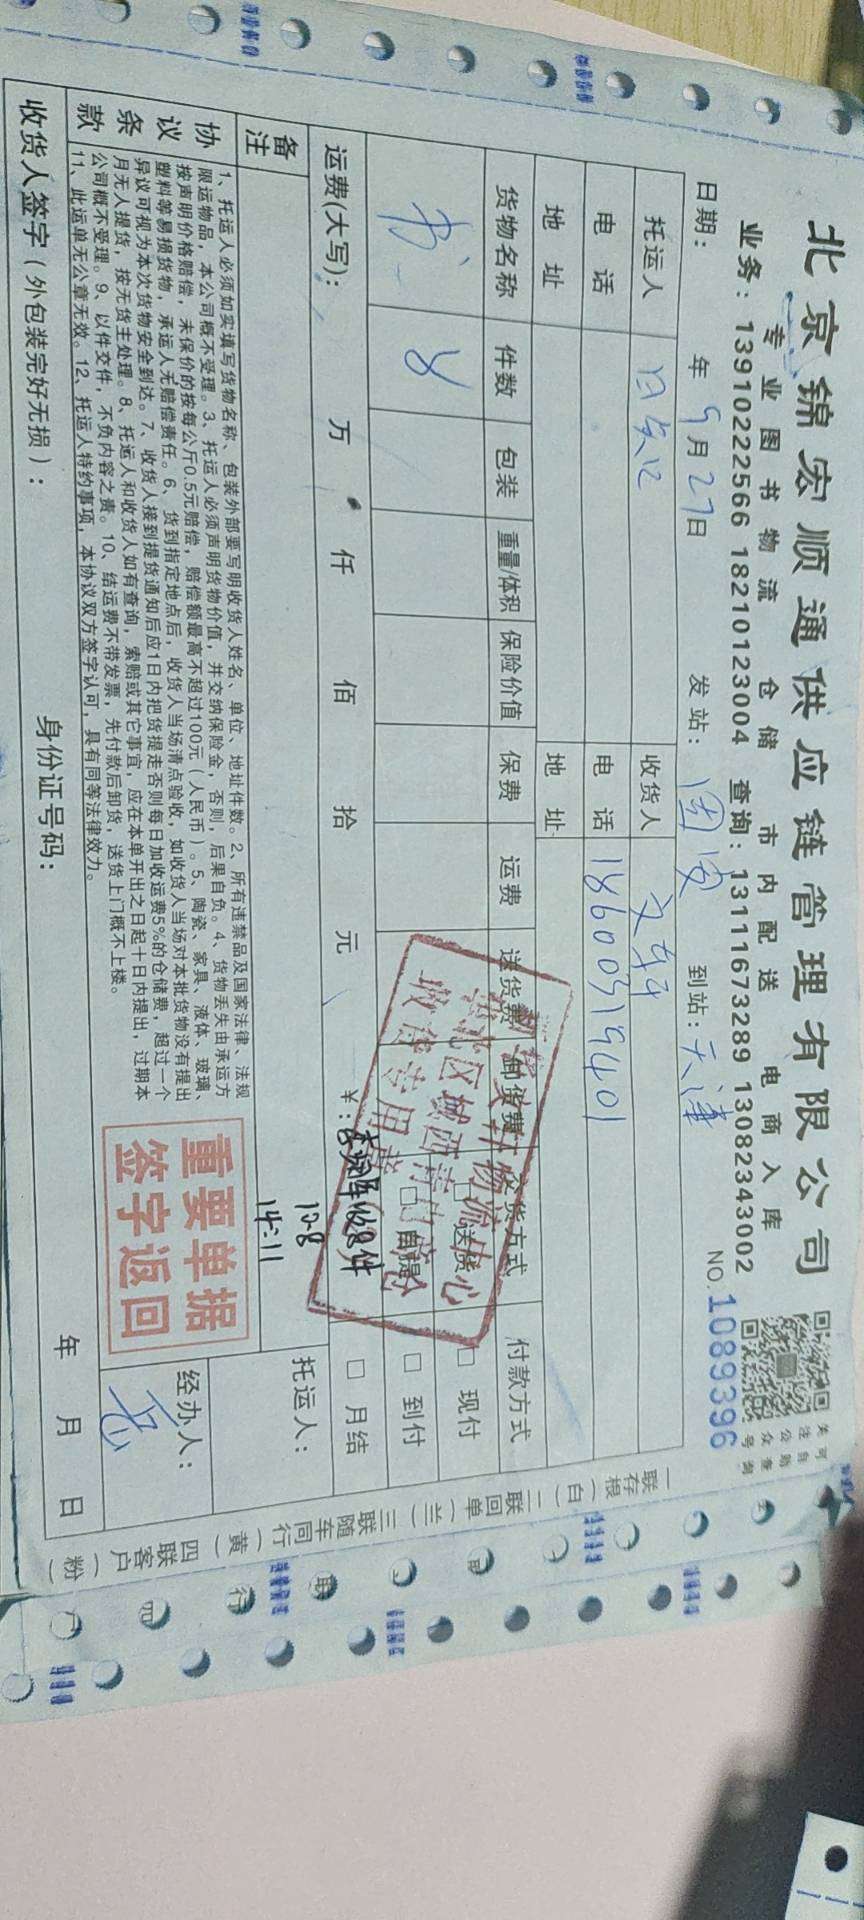 北京锦宏顺通供应链管理有限公司
专业图书物流 仓储 市内配送 电商入库
业务：13910222566 18210123004 查询：13111673289 13082343002
关注公众号
可自助查询
日期： 年9月27日 发站： 到站：天津 NO.1089396
托运人 收货人 文轩
电话 电话 18600519401
地址 地址
货物名称 件数 包装 重量/体积 保险价值 保费 运费 送货费 卸货费 交货方式 付款方式
书 8 □送货 □现付
□自提 □到付
运费(大写)： 万 仟 佰 拾 元 ¥： □月结
收8件
10-8
14:11
备注
托运人：
协议条款
1、托运人必须如实填写货物名称、包装外部要写明收货人姓名、单位、地址件数。2、所有违禁品及国家法律、法规
限运物品，本公司概不受理。3、托运人必须声明货物价值，并交纳保险金，否则，后果自负。4、货物丢失由承运方
按声明价格赔偿，未保价的按每公斤0.5元赔偿，赔偿额最高不超过100元（人民币）。5、陶瓷、家具、液体、玻璃、
塑料等易损货物，承运人无赔偿责任。6、货到指定地点后，收货人当场清点验收，如收货人当场对本批货物没有提出
异议可视为本次货物安全到达。7、收货人接到提货通知后应1日内把货提走否则每日加收运费5%的仓储费，超过一个
月无人提货，按无货主处理。8、托运人和收货人如有查询，索赔或其它事宜，应在本单开出之日起十日内提出，过期本
公司概不受理。9、以件交件，不负内容之责。10、结运费不带发票，先付款后卸货，送货上门概不上楼。
11、此运单无公章无效。12、托运人特约事项，本协议双方签字认可，具有同等法律效力。
重要单据
签字返回
经办人：
收货人签字（外包装完好无损）： 身份证号码： 年 月 日
物流中心
收货专用章
一联存根（白）二联回单（兰）三联随车同行（黄）四联客户（粉）